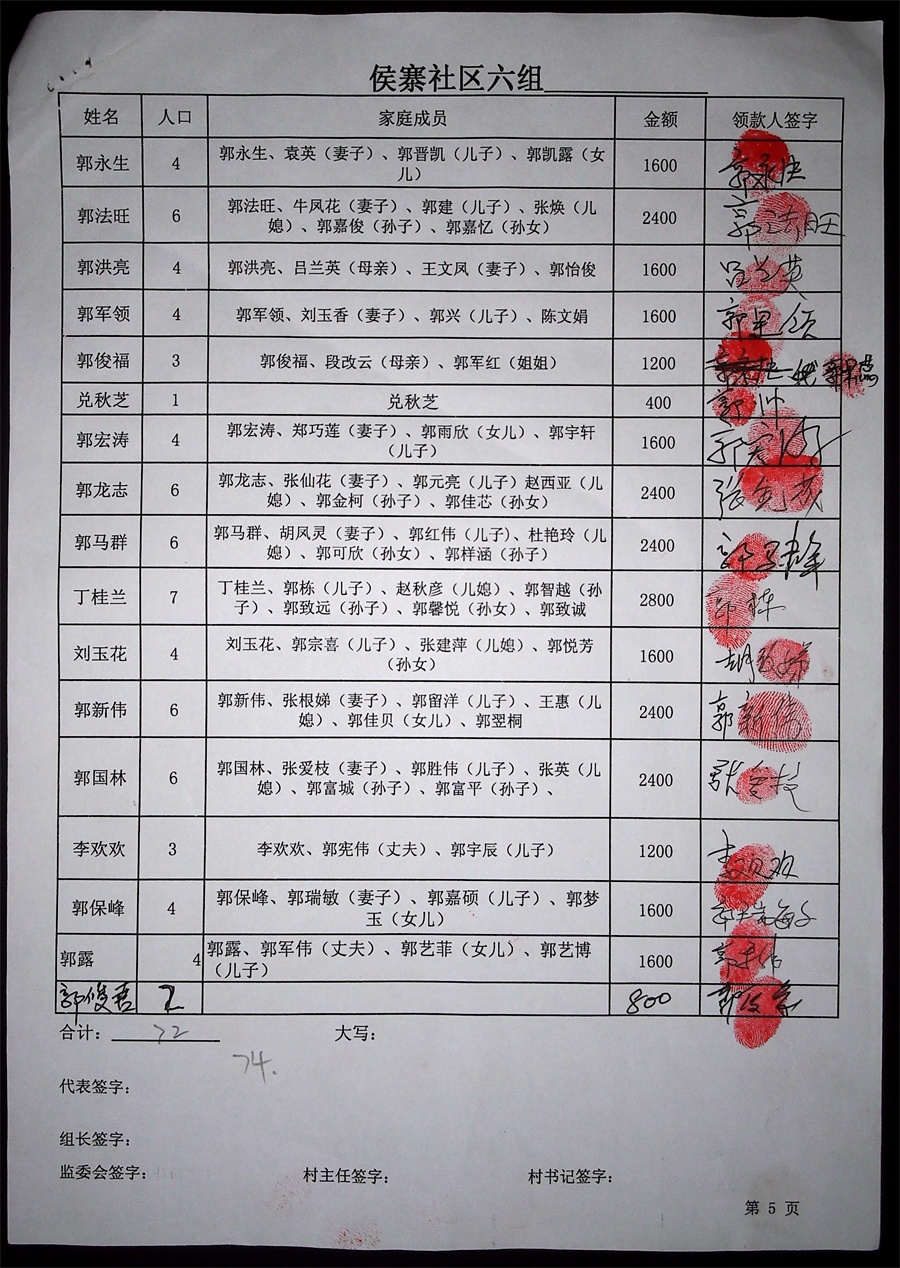 侯寨社区六组
姓名 人口 家庭成员 金额 领款人签字
郭永生 4 郭永生、袁英（妻子）、郭晋凯（儿子）、郭凯露（女 1600
儿）
郭法旺 6 郭法旺、牛凤花（妻子）、郭建（儿子）、张焕（儿 2400 郭法旺
媳）、郭嘉俊（孙子）、郭嘉忆（孙女）
郭洪亮 4 郭洪亮、吕兰英（母亲）、王文凤（妻子）、郭怡俊 1600 吕兰英
郭军领 4 郭军领、刘玉香（妻子）、郭兴（儿子）、陈文娟 1600 郭军领
郭俊福 3 郭俊福、段改云（母亲）、郭军红（姐姐） 1200
兑秋芝 1 兑秋芝 400 郭帅
郭宏涛 4 郭宏涛、郑巧莲（妻子）、郭雨欣（女儿）、郭宇轩 1600 郭宏涛
（儿子）
郭龙志 6 郭龙志、张仙花（妻子）、郭元亮（儿子）赵西亚（儿 2400
媳）、郭金柯（孙子）、郭佳芯（孙女）
郭马群 6 郭马群、胡凤灵（妻子）、郭红伟（儿子）、杜艳玲（儿 2400
媳）、郭可欣（孙女）、郭样涵（孙子）
丁桂兰 7 丁桂兰、郭栋（儿子）、赵秋彦（儿媳）、郭智越（孙 2800 郭栋
子）、郭致远（孙子）、郭馨悦（孙女）、郭致诚
刘玉花 4 刘玉花、郭宗喜（儿子）、张建萍（儿媳）、郭悦芳 1600
（孙女）
郭新伟 6 郭新伟、张根娣（妻子）、郭留洋（儿子）、王惠（儿 2400 郭新伟
媳）、郭佳贝（女儿）、郭翌桐
郭国林 6 郭国林、张爱枝（妻子）、郭胜伟（儿子）、张英（儿 2400 张爱枝
媳）、郭富城（孙子）、郭富平（孙子）、
李欢欢 3 李欢欢、郭宪伟（丈夫）、郭宇辰（儿子） 1200 李欢欢
郭保峰 4 郭保峰、郭瑞敏（妻子）、郭嘉硕（儿子）、郭梦 1600 郭瑞敏
玉（女儿）
郭露 4 郭露、郭军伟（丈夫）、郭艺菲（女儿）、郭艺博 1600 郭军伟
（儿子）
郭俊 2 800 郭俊
合计： 72 大写：
74.
代表签字：
组长签字：
监委会签字： 村主任签字： 村书记签字：
第 5 页